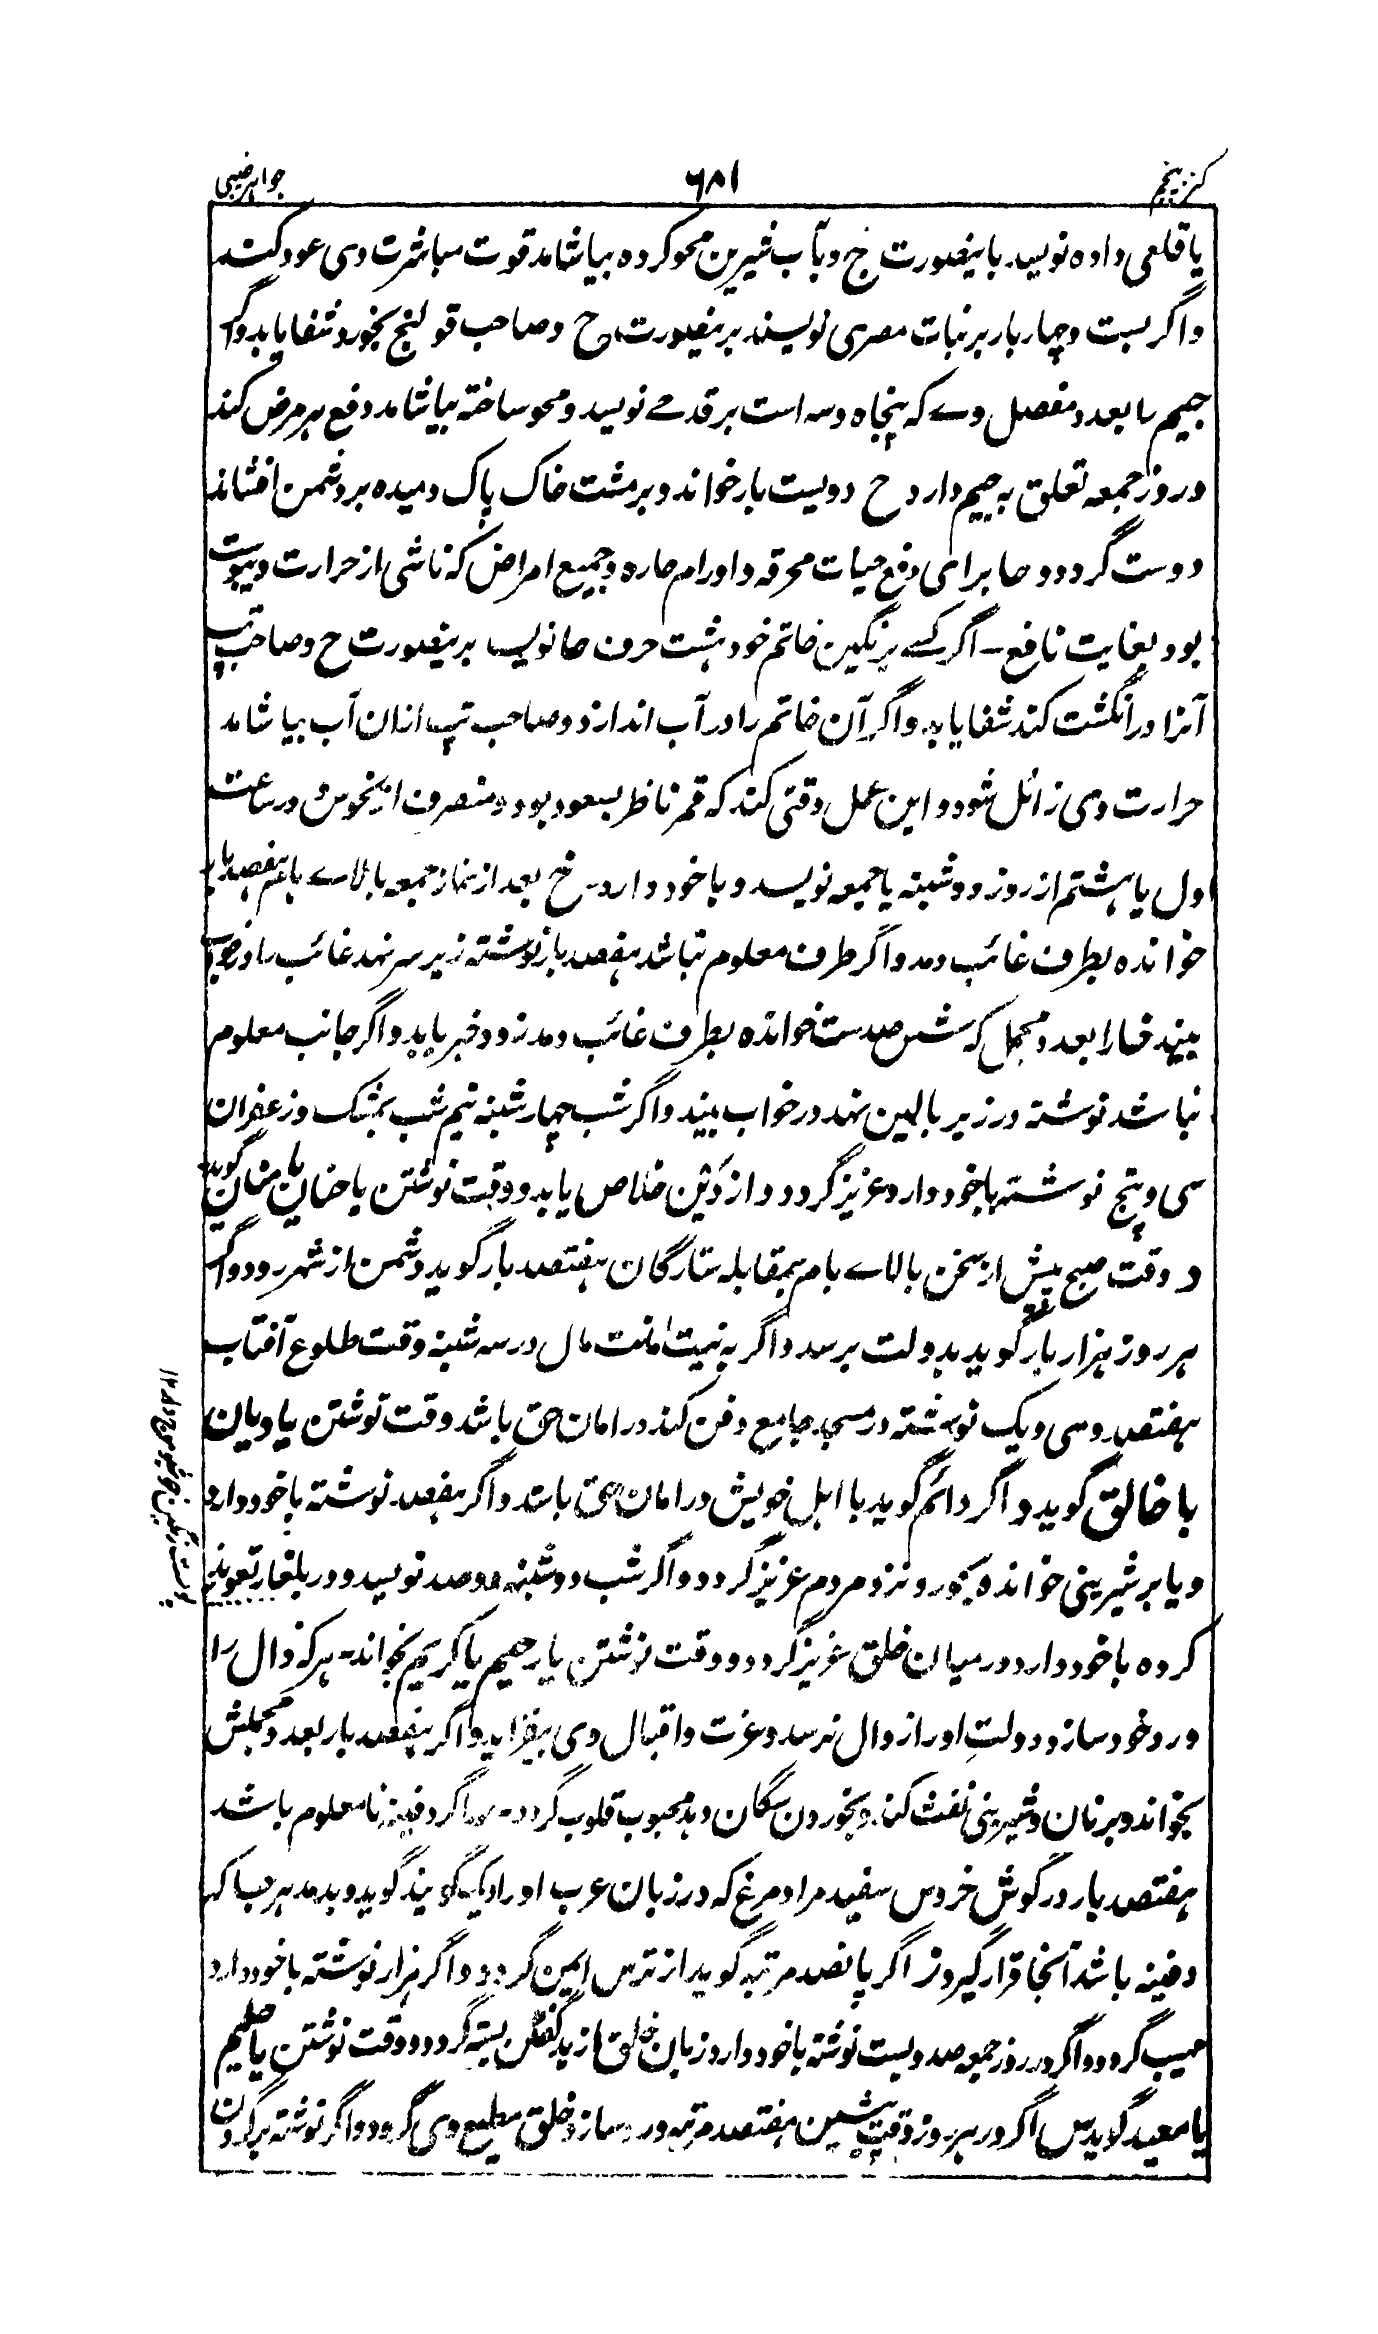 کنز پنجم
۶۸۱
جواہر غیبی
یا قلعی داده نویسد باینصورت ج و بآب شیرین محو کرده بیاشامد قوت مباشرت وی عود کند
واگر بست و چهار بار بر نبات مصری نویسند برینصورت ح و صاحب قولنج بخورد شفا یابد واگر
جیم را بعدد مفصل وے که پنجاه و سه است بر قدحے نویسد و محو ساخته بیاشامد دفع هر مرض کند
و روز جمعه تعلق به جیم دارد ح دویست بار خواند و بر مشت خاک پاک دمیده بر دشمن افشاند
دوست گردد و حا برای دفع حمیات محرقه و اورام حاره و جمیع امراض که ناشی از حرارت و یبوست
بود بغایت نافع - اگر کسے بر نگین خاتم خود هشت حرف حا نویسد برینصورت ح و صاحب تپ
آنرا در انگشت کند شفا یابد واگر آن خاتم را در آب اندازد و صاحب تپ ازان آب بیاشامد
حرارت وی زائل شود و این عمل وقتی کند که قمر ناظر بسعود بود و منصرف از نحوس در ساعت
اول یا هشتم از روز دوشنبه یا جمعه نویسد و با خود دارد - خ بعد از نماز جمعه بالاے بام هفصد بار
خوانده بطرف غائب دمد واگر طرف معلوم نباشد هفصد بار نوشته زیر سر نهد غائب را در خواب
بیند خا را بعدد مجمل که شش صدست خوانده بطرف غائب دمد زود خبر یابد واگر جانب معلوم
نباشد نوشته در زیر بالین نهد در خواب بیند واگر شب چهار شنبه نیم شب بمشک و زعفران
سی و پنج نوشته با خود دارد عزیز گردد و از دَین خلاص یابد و وقت نوشتن یا حنان یا منان گوید
د وقت صبح پیش از سخن بالاے بام بمقابله ستارگان هفتصد بار گوید دشمن از شهر رود واگر
هر روز هزار بار گوید بدولت برسد واگر به نیت امانت مال در سه شنبه وقت طلوع آفتاب
هفتصد و سی و یک نوشته در مسجد جامع دفن کند در امان حق باشد وقت نوشتن یا دیان
یا خالق گوید واگر دائم گوید با اهل خویش در امان حق باشد واگر هفصد نوشته با خود دارد
و یا بر شیرینی خوانده بخورد نزد مردم عزیز گردد واگر شب دوشنبه دو صد نویسد و در بلغار تعویذ
کرده با خود دارد در میان خلق عزیز گردد و وقت نوشتن یا رحیم یا کریم بخواند - هر که دال را
ورد خود سازد دولت او را زوال نرسد و عزت و اقبال وی بیفزاید واگر هفصد بار بعدد مجملش
بخواند و بر نان و شیرینی نفث کند و بخوردن سگان دهد محبوب قلوب گردد - اگر دفینه نا معلوم باشد
هفتصد بار در گوش خروس سفید مراد مرغ که در زبان عرب او را دیک گویند گوید و بدمد هر جا که
دفینه باشد آنجا قرار گیرد ز اگر پانصد مرتبه گوید از ترس ایمن گردد واگر هزار نوشته با خود دارد
حبیب گردد واگر در روز جمعه صد و بست نوشته با خود دارد زبان خلق از بد گفتن بسته گردد و وقت نوشتن یا حلیم
یا معید گوید س اگر در هر روز وقت پیشین هفتصد مرتبه ورد سازد خلق مطیع وی گردد واگر نوشته بر گردن